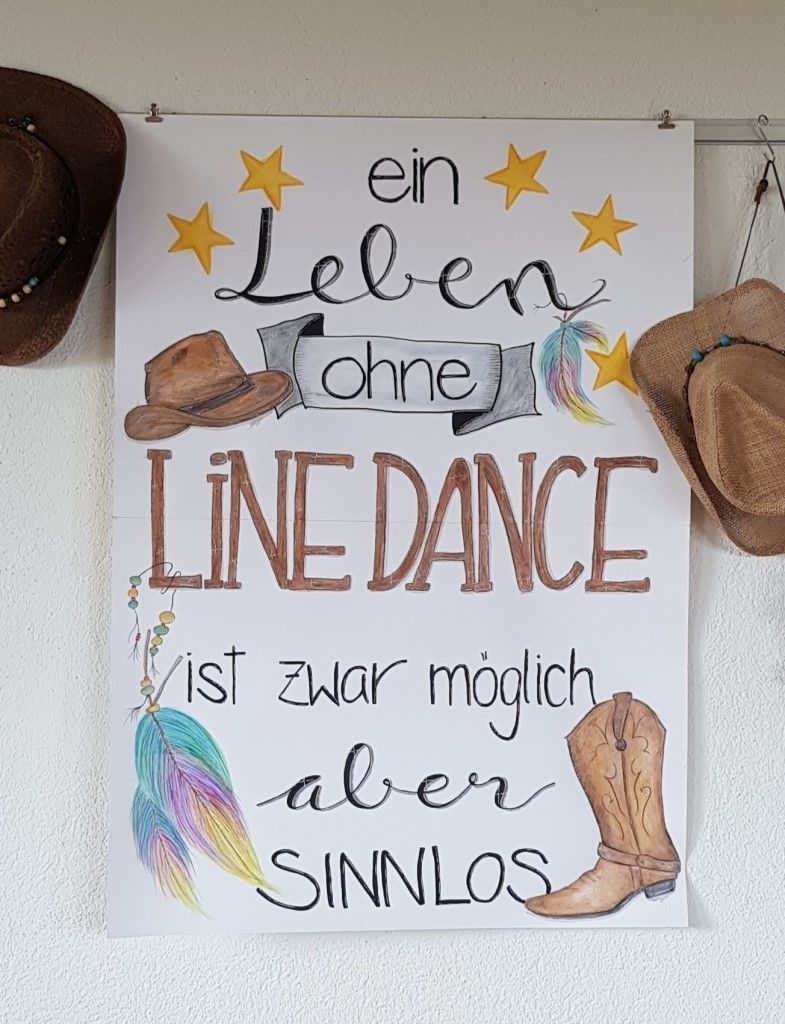 ein
Leben
ohne
LiNE DANCE
ist zwar möglich
aber
SINNLOS